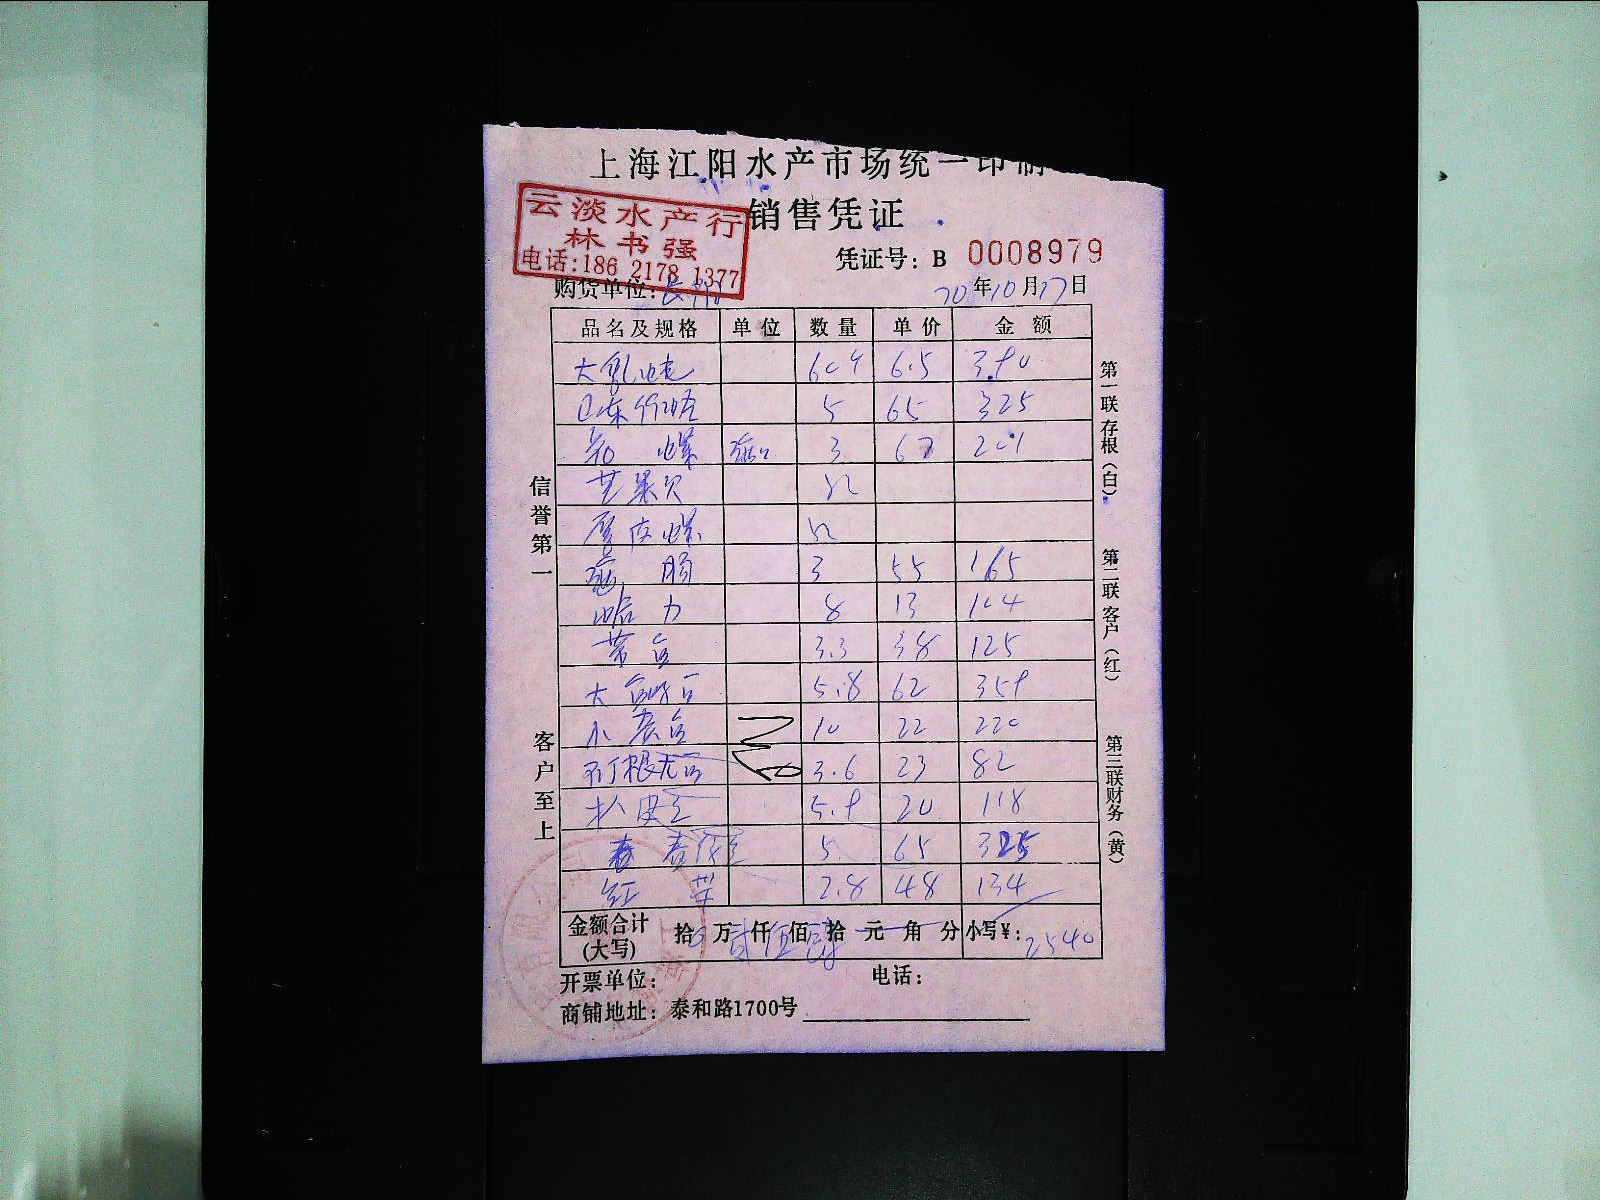 上海江阳水产市场统一印制
销售凭证
云淡水产行
林书强
电话:186 2178 1377
凭证号: B 0008979
购货单位:
20年10月17日
品名及规格 单位 数量 单价 金额
60只 6.5 390
5 65 325
螺 3 67 201
芒果贝
皮螺
肠 3 55 165
蛤力 8 13 104
带鱼 3.3 38 125
大 5.8 62 359
小黄鱼 10 22 220
3.6 23 82
扒皮鱼 5.9 20 118
5 65 325
红 2.8 48 134
金额合计(大写) 拾 万贰仟伍佰肆拾元角分 小写¥: 2540
开票单位: 电话:
商铺地址: 泰和路1700号
信誉第一
客户至上
第一联存根(白)
第二联客户(红)
第三联财务(黄)